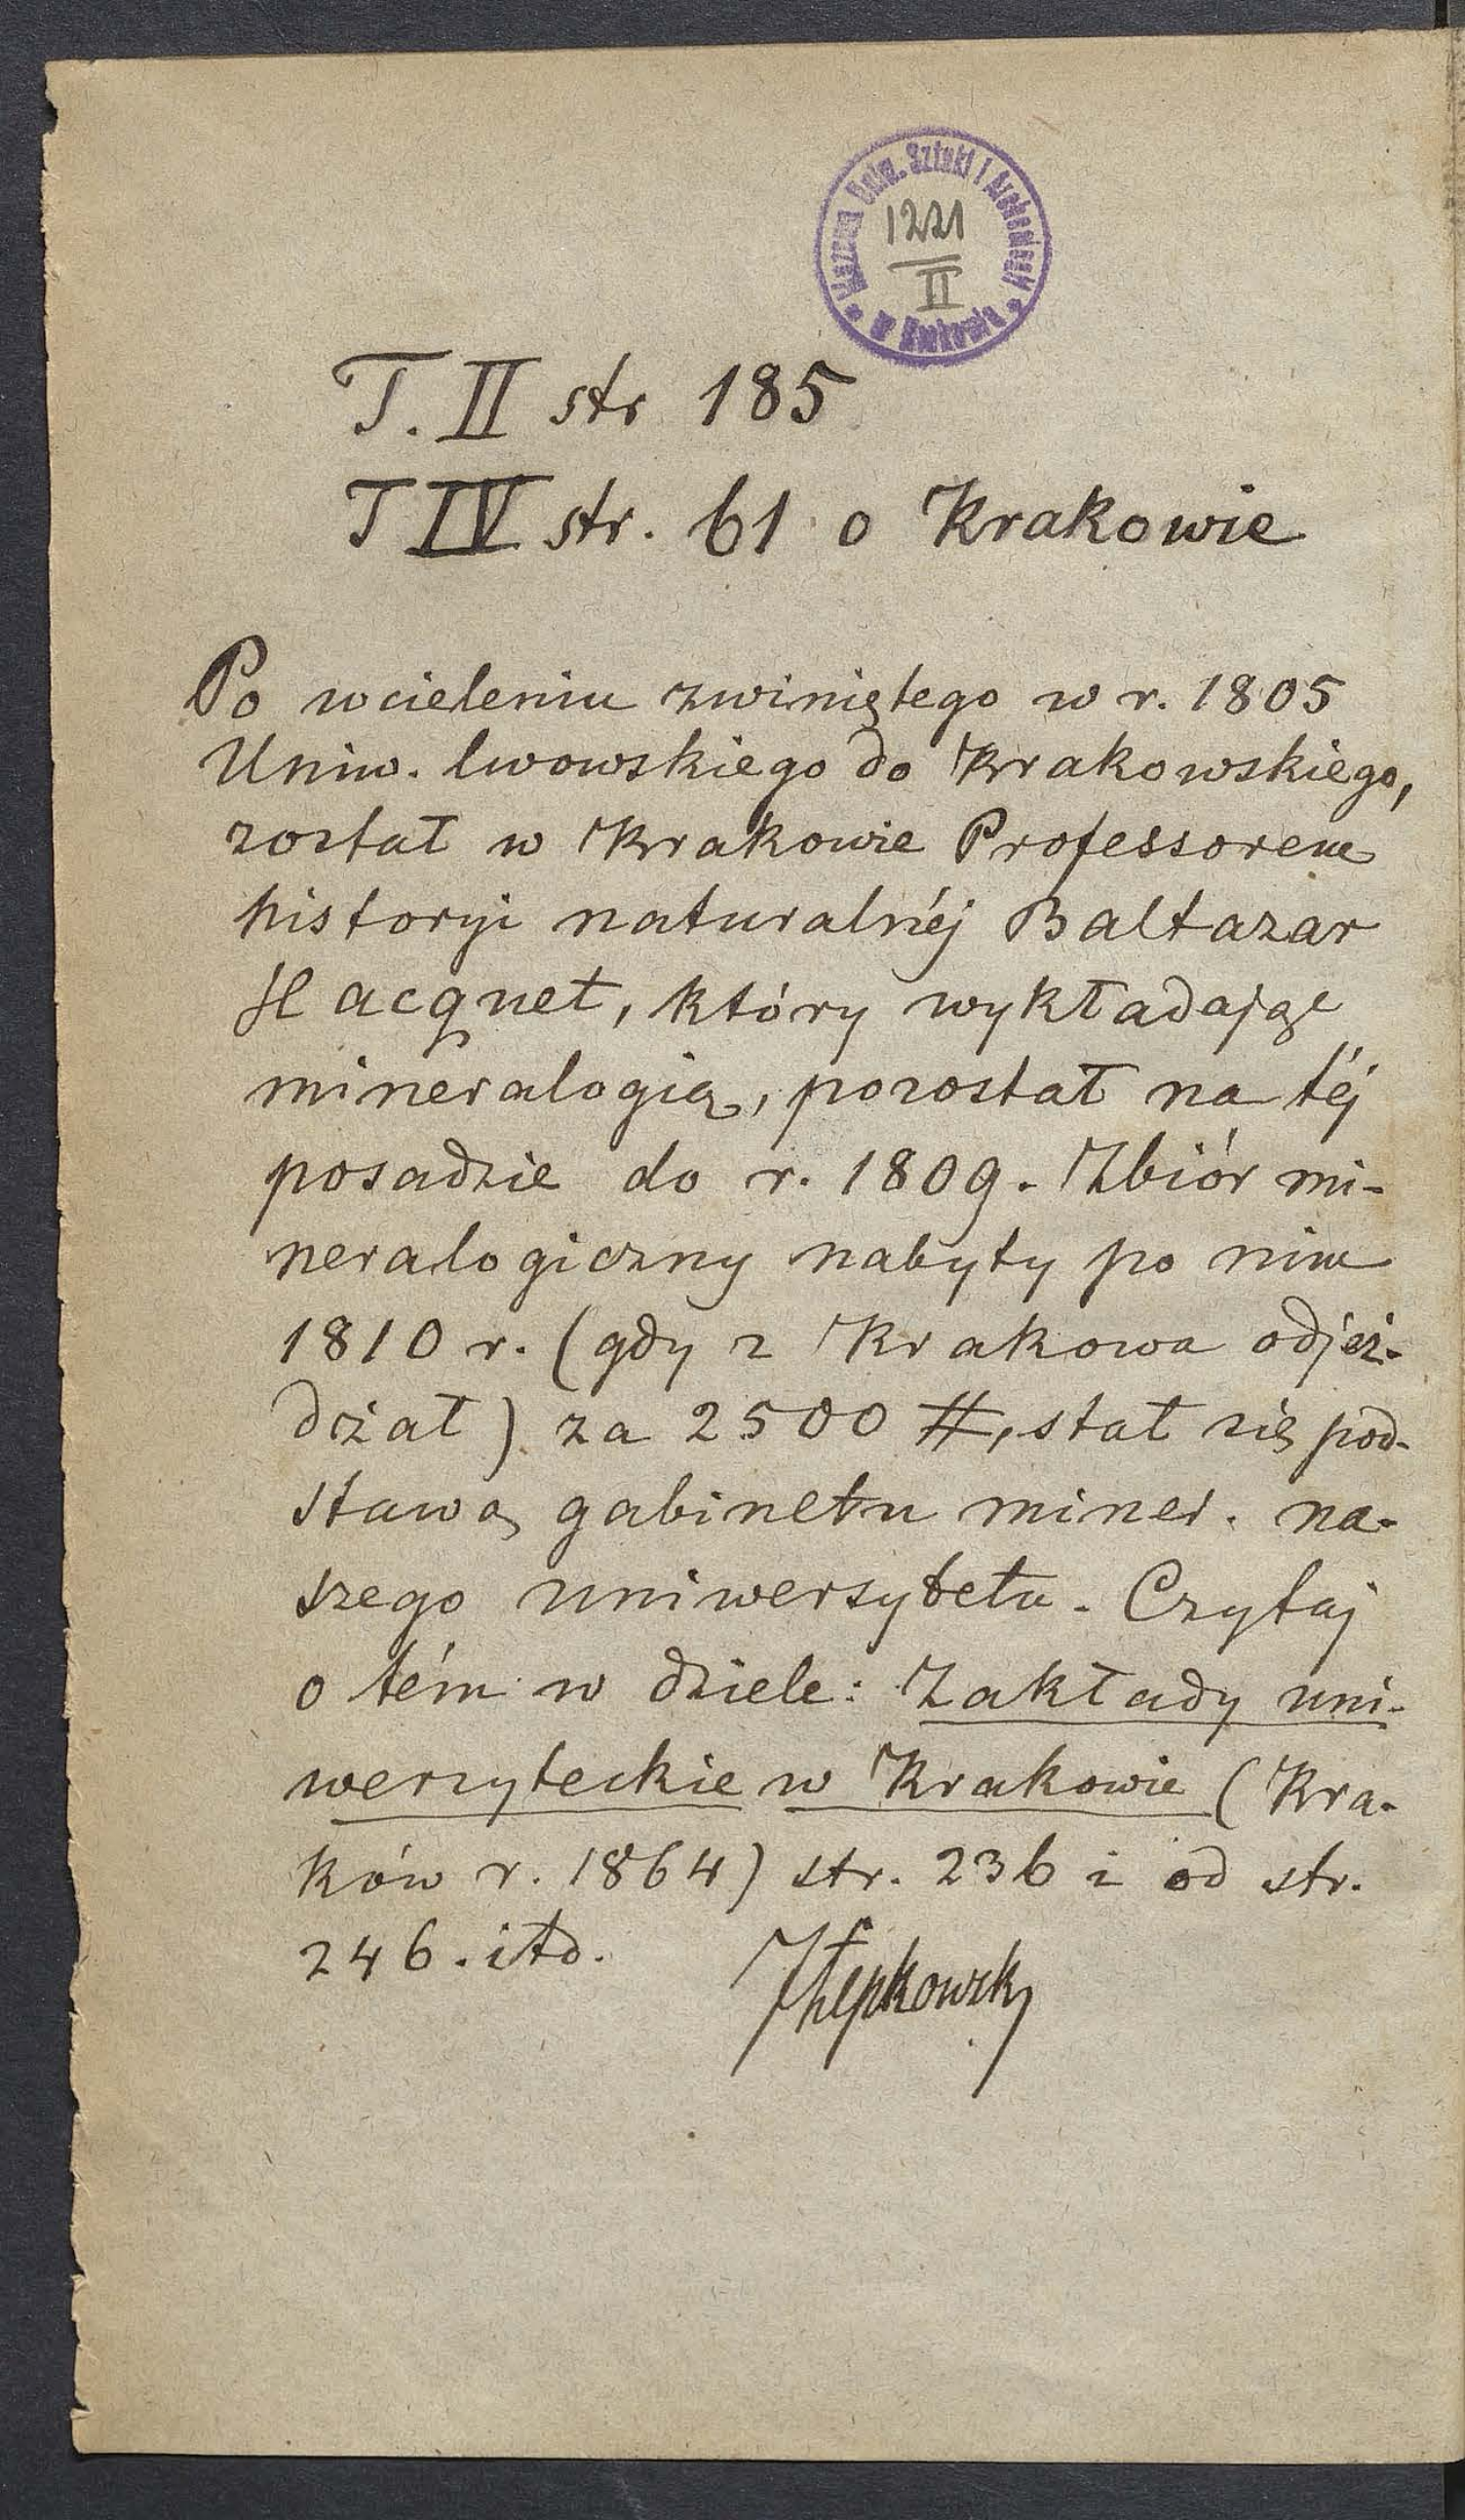 Muzeum Uniw. Sztuki i Archeologii
w Krakowie
1221
II
T. II str 185
T IV str. 61 o Krakowie
Po wcieleniu zwiniętego w r. 1805
Uniw. lwowskiego do Krakowskiego,
został w Krakowie Professorem
historyi naturalnéj Baltazar
Hacquet, który wykładając
mineralogią, pozostał na téj
posadzie do r. 1809. Zbiór mi-
neralogiczny nabyty po nim
1810 r. (gdy z Krakowa odjeż-
dżał) za 2500 #, stał się pod-
stawą gabinetu miner. na-
szego uniwersytetu. Czytaj
o tém w dziele: Zakłady uni-
wersyteckie w Krakowie (Kra-
ków r. 1864) str. 236 i od str.
246. itd. JŁepkowski